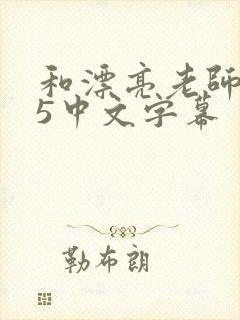 和漂亮老師
5中文字幕
勒布朗